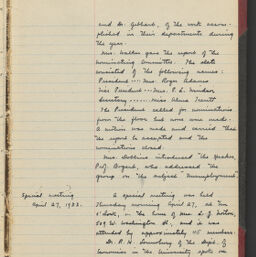 and Dr. Gebhart, of the work accom-
plished in their departments during
the year.
Mrs. Walker gave the report of the
nominating committee. The slate
consisted of the following names:
President .... Mrs. Roger Adams
Vice President ... Mrs. P. L. Windsor
Secretary ....... Miss Alma
The President called for nominations
from the floor but none were made.
A motion was made and carried that
the report be accepted and the
nominations closed.
Mrs. introduced the speaker,
Prof. Bogart, who addressed the
group on the subject "Unemployment".
Special meeting
April 27, 1933.
A special meeting was held
Thursday morning April 27, at ten
o'clock, in the home of Mrs.
Washington St., and it was
attended by approximately 45 members.
Dr. R. H. of the Dept. of
Economics in the University spoke on